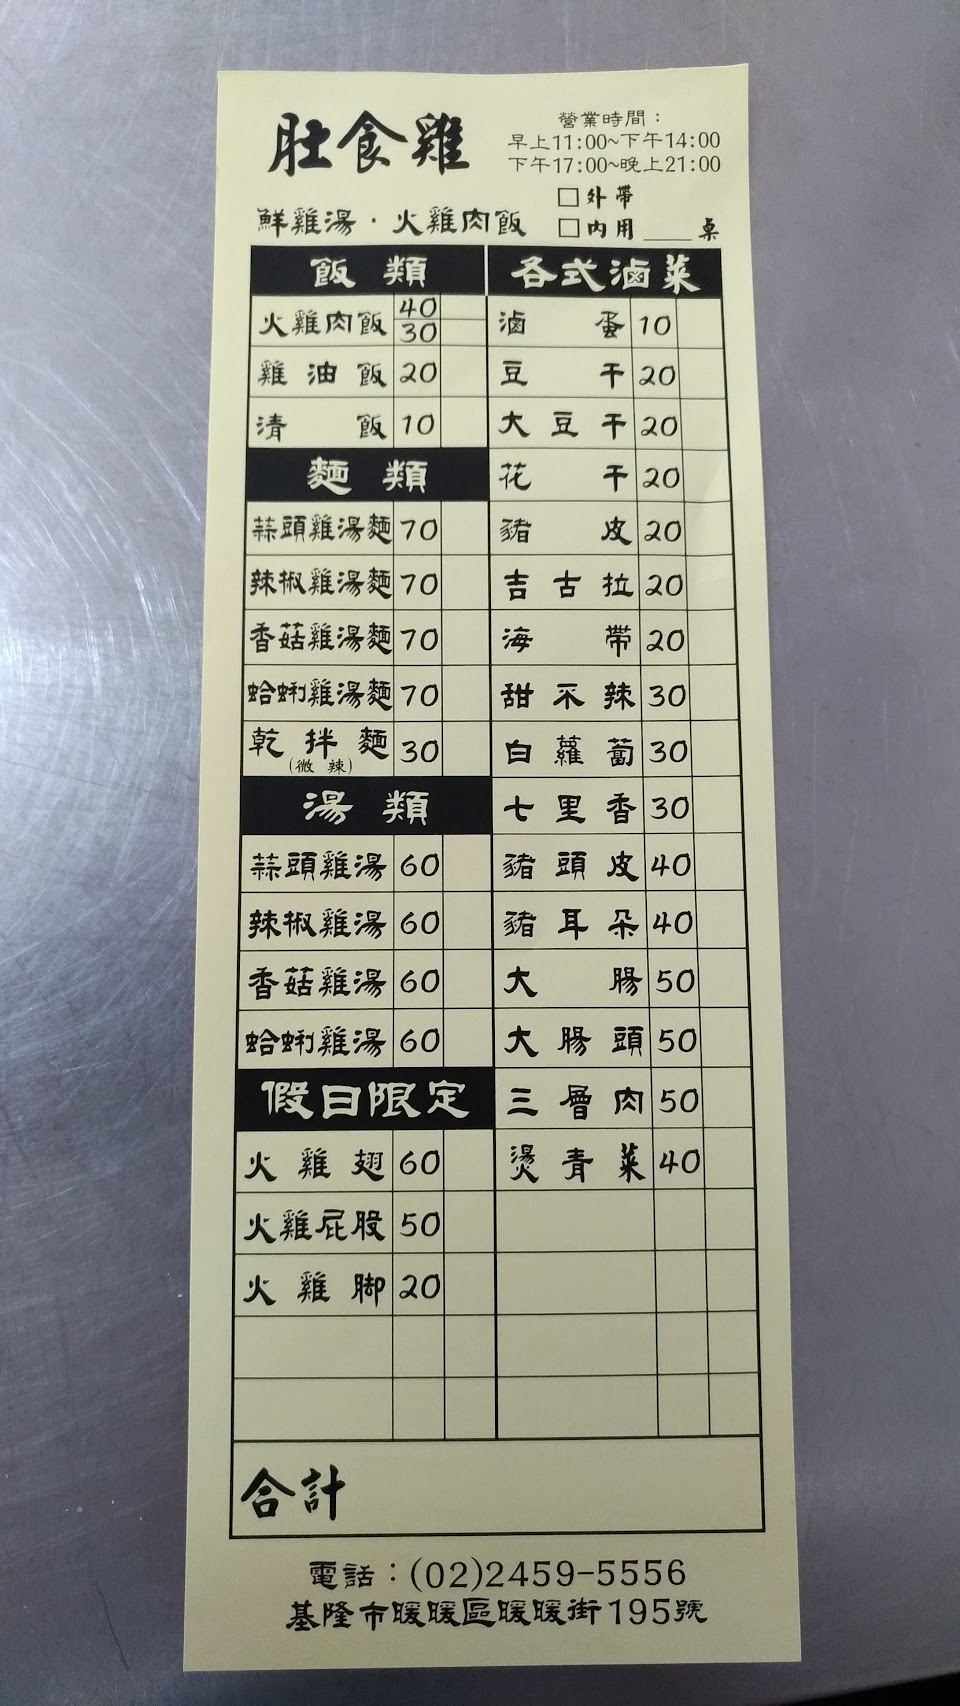 肚食雞
營業時間：
早上11:00~下午14:00
下午17:00~晚上21:00
□外帶
鮮雞湯・火雞肉飯
□內用____桌
飯類
火雞肉飯 40
30
雞油飯 20
清飯 10
麵類
蒜頭雞湯麵 70
辣椒雞湯麵 70
香菇雞湯麵 70
蛤蜊雞湯麵 70
乾拌麵 30
(微辣)
湯類
蒜頭雞湯 60
辣椒雞湯 60
香菇雞湯 60
蛤蜊雞湯 60
假日限定
火雞翅 60
火雞屁股 50
火雞腳 20
各式滷菜
滷蛋 10
豆干 20
大豆干 20
花干 20
豬皮 20
吉古拉 20
海帶 20
甜不辣 30
白蘿蔔 30
七里香 30
豬頭皮 40
豬耳朵 40
大腸 50
大腸頭 50
三層肉 50
燙青菜 40
合計
電話：(02)2459-5556
基隆市暖暖區暖暖街195號